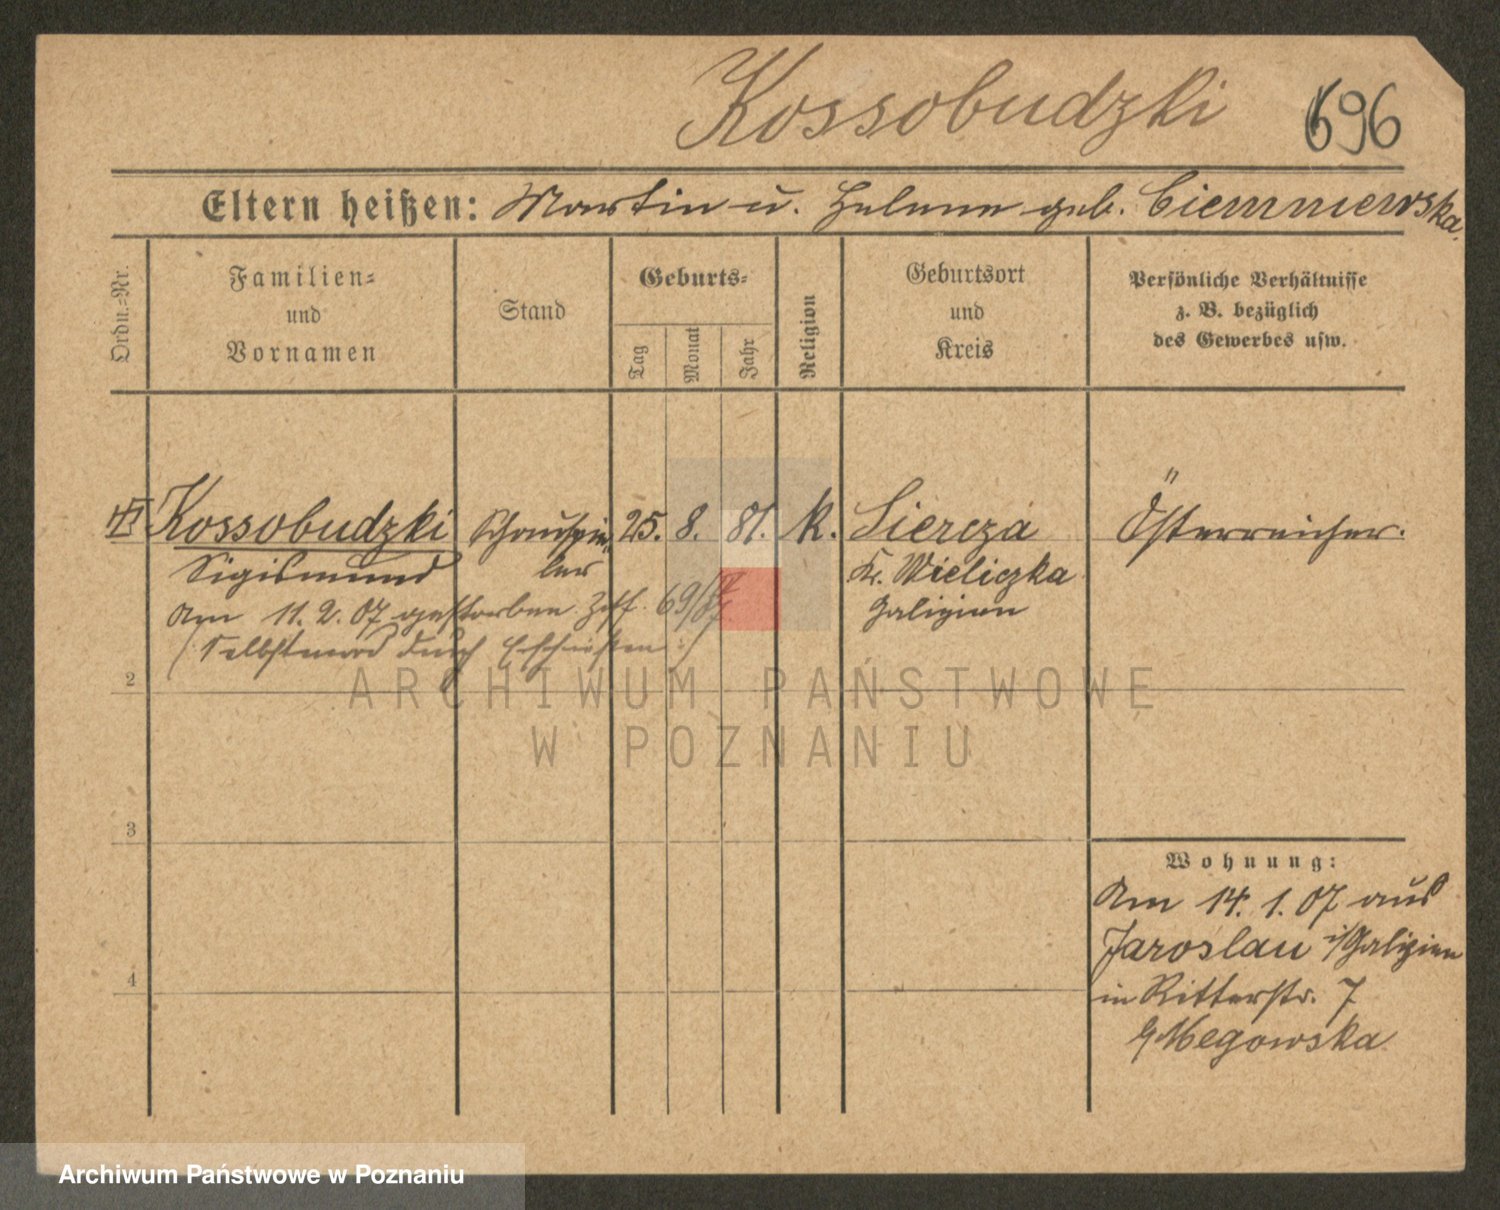 Kossobudzki 696
Eltern heißen: Martin u. Helene geb. Ciemniewska.
Ordn.-Nr.
Familien-
und
Vornamen
Stand
Geburts-
Tag
Monat
Jahr
Religion
Geburtsort
und
Kreis
Persönliche Verhältnisse
z. B. bezüglich
des Gewerbes usw.
Kossobudzki Schauspie- 25. 8. 81. k. Siercza Österreicher.
Sigismund ler Kr. Wieliczka
Am 11. 2. 07 gestorben. 69/07 Galizien
(Selbstmord durch Erschießen:)
2
ARCHIWUM PAŃSTWOWE
W POZNANIU
3
Wohnung:
Am 14. 1. 07 aus
Jaroslau i/Galizien
4
in Ritterstr. 7
Megowska
Archiwum Państwowe w Poznaniu